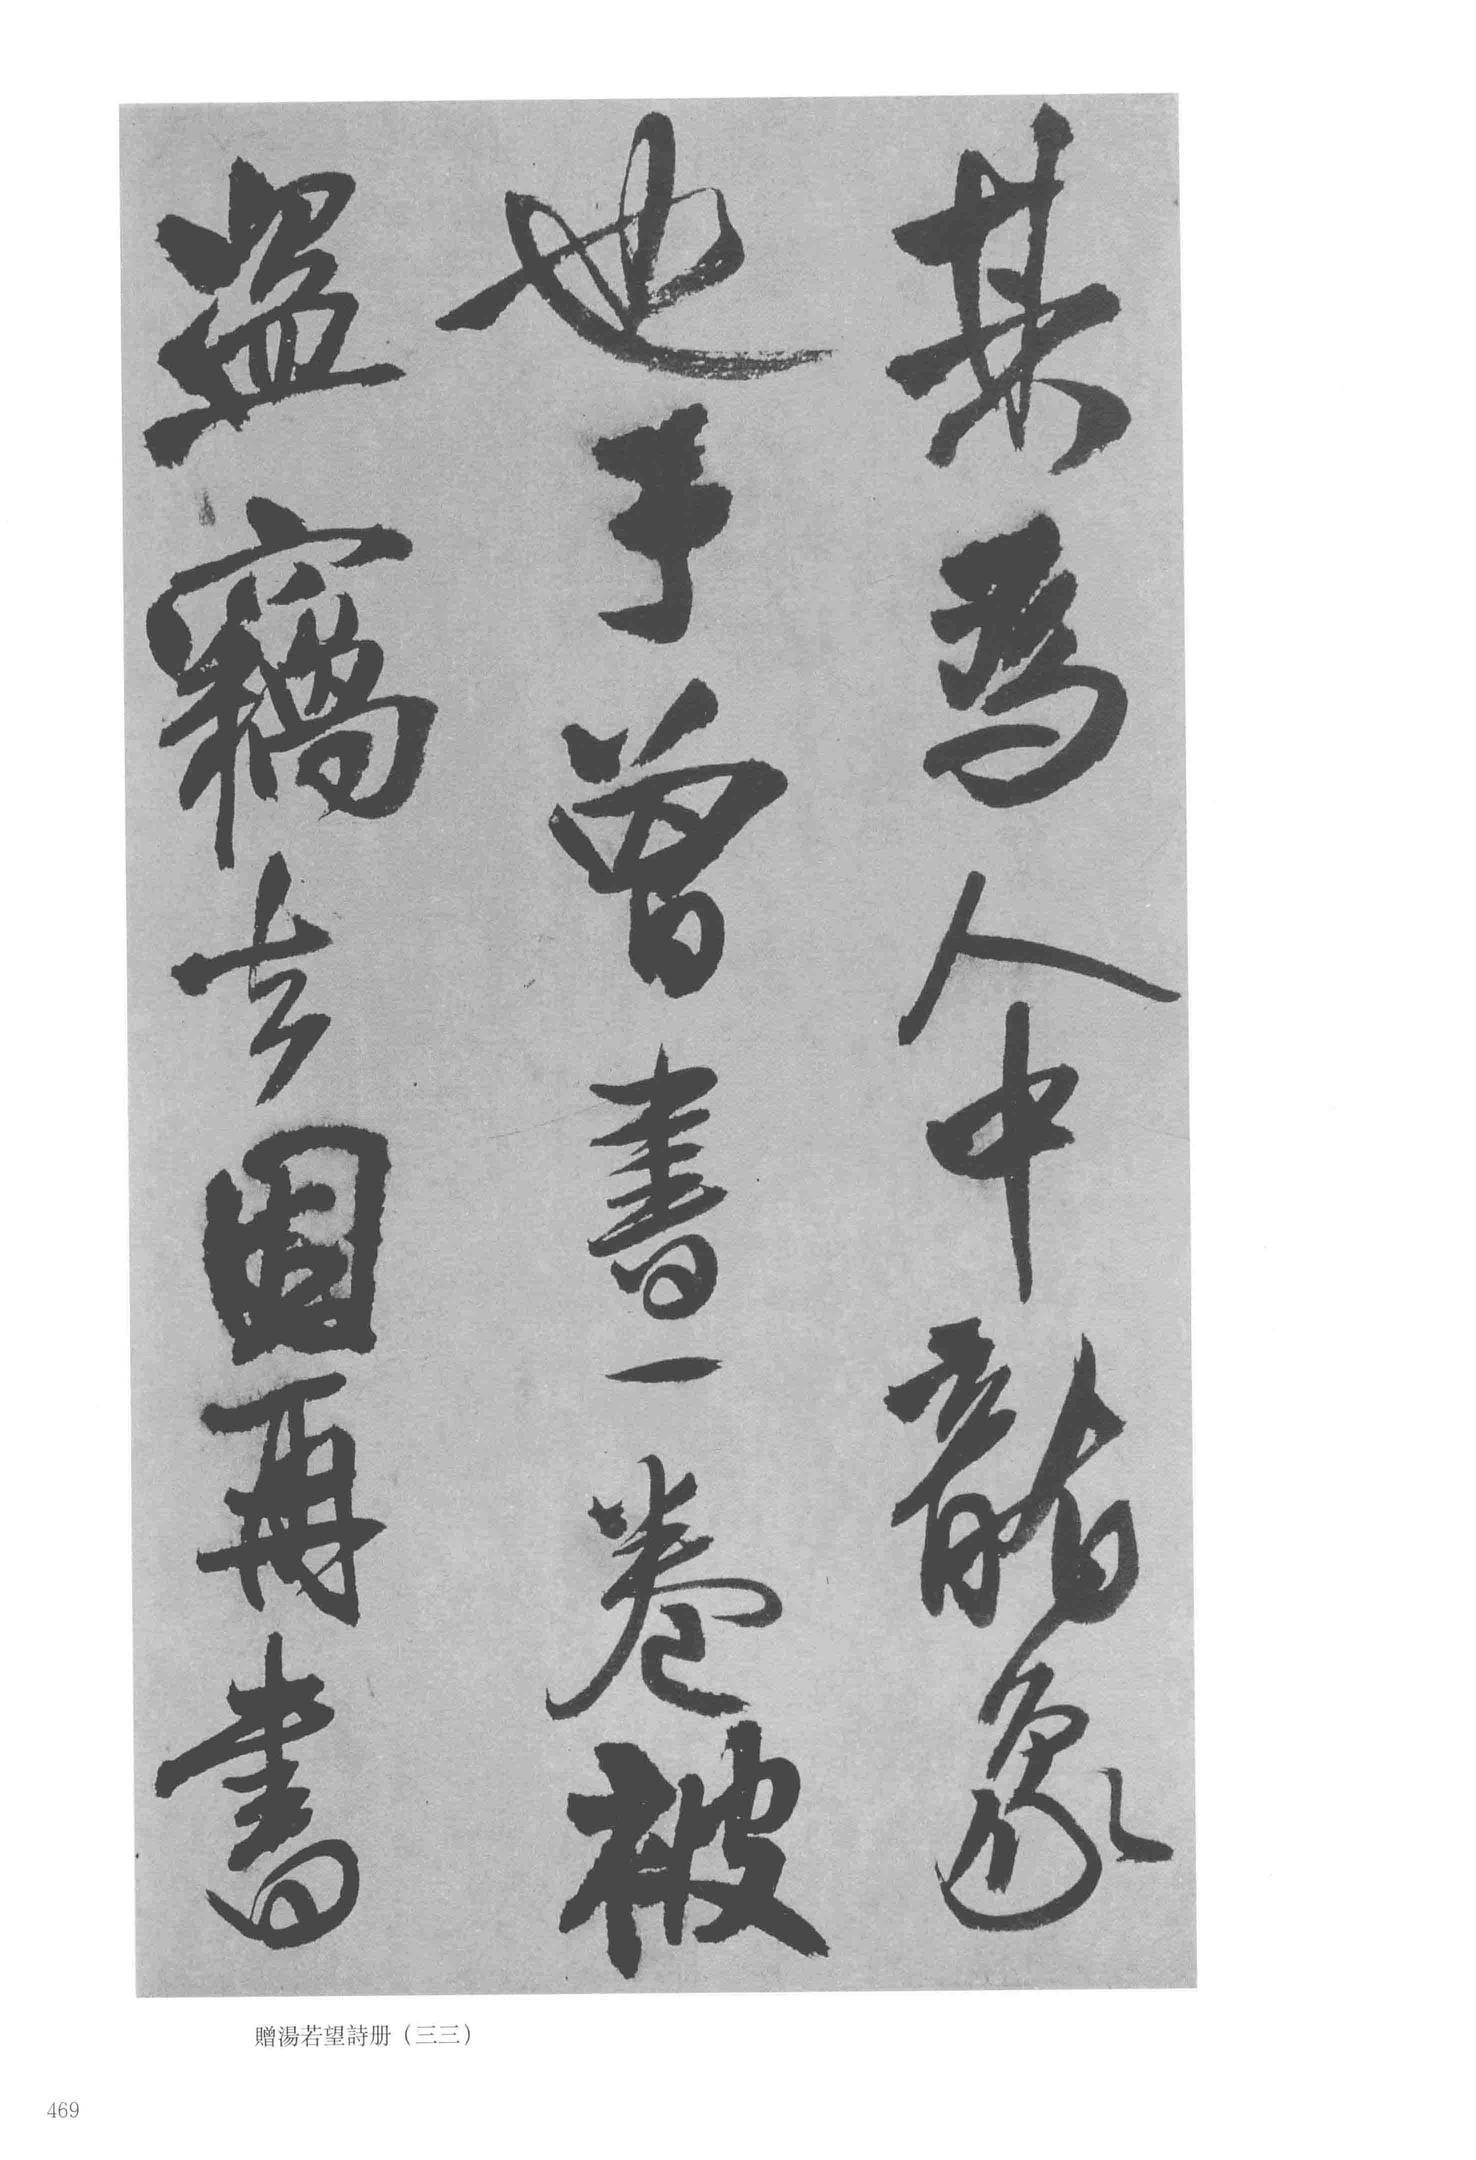 某為人中龍象
也予曾書一卷被
盜竊去固再書
贈湯若望詩册（三三）
469